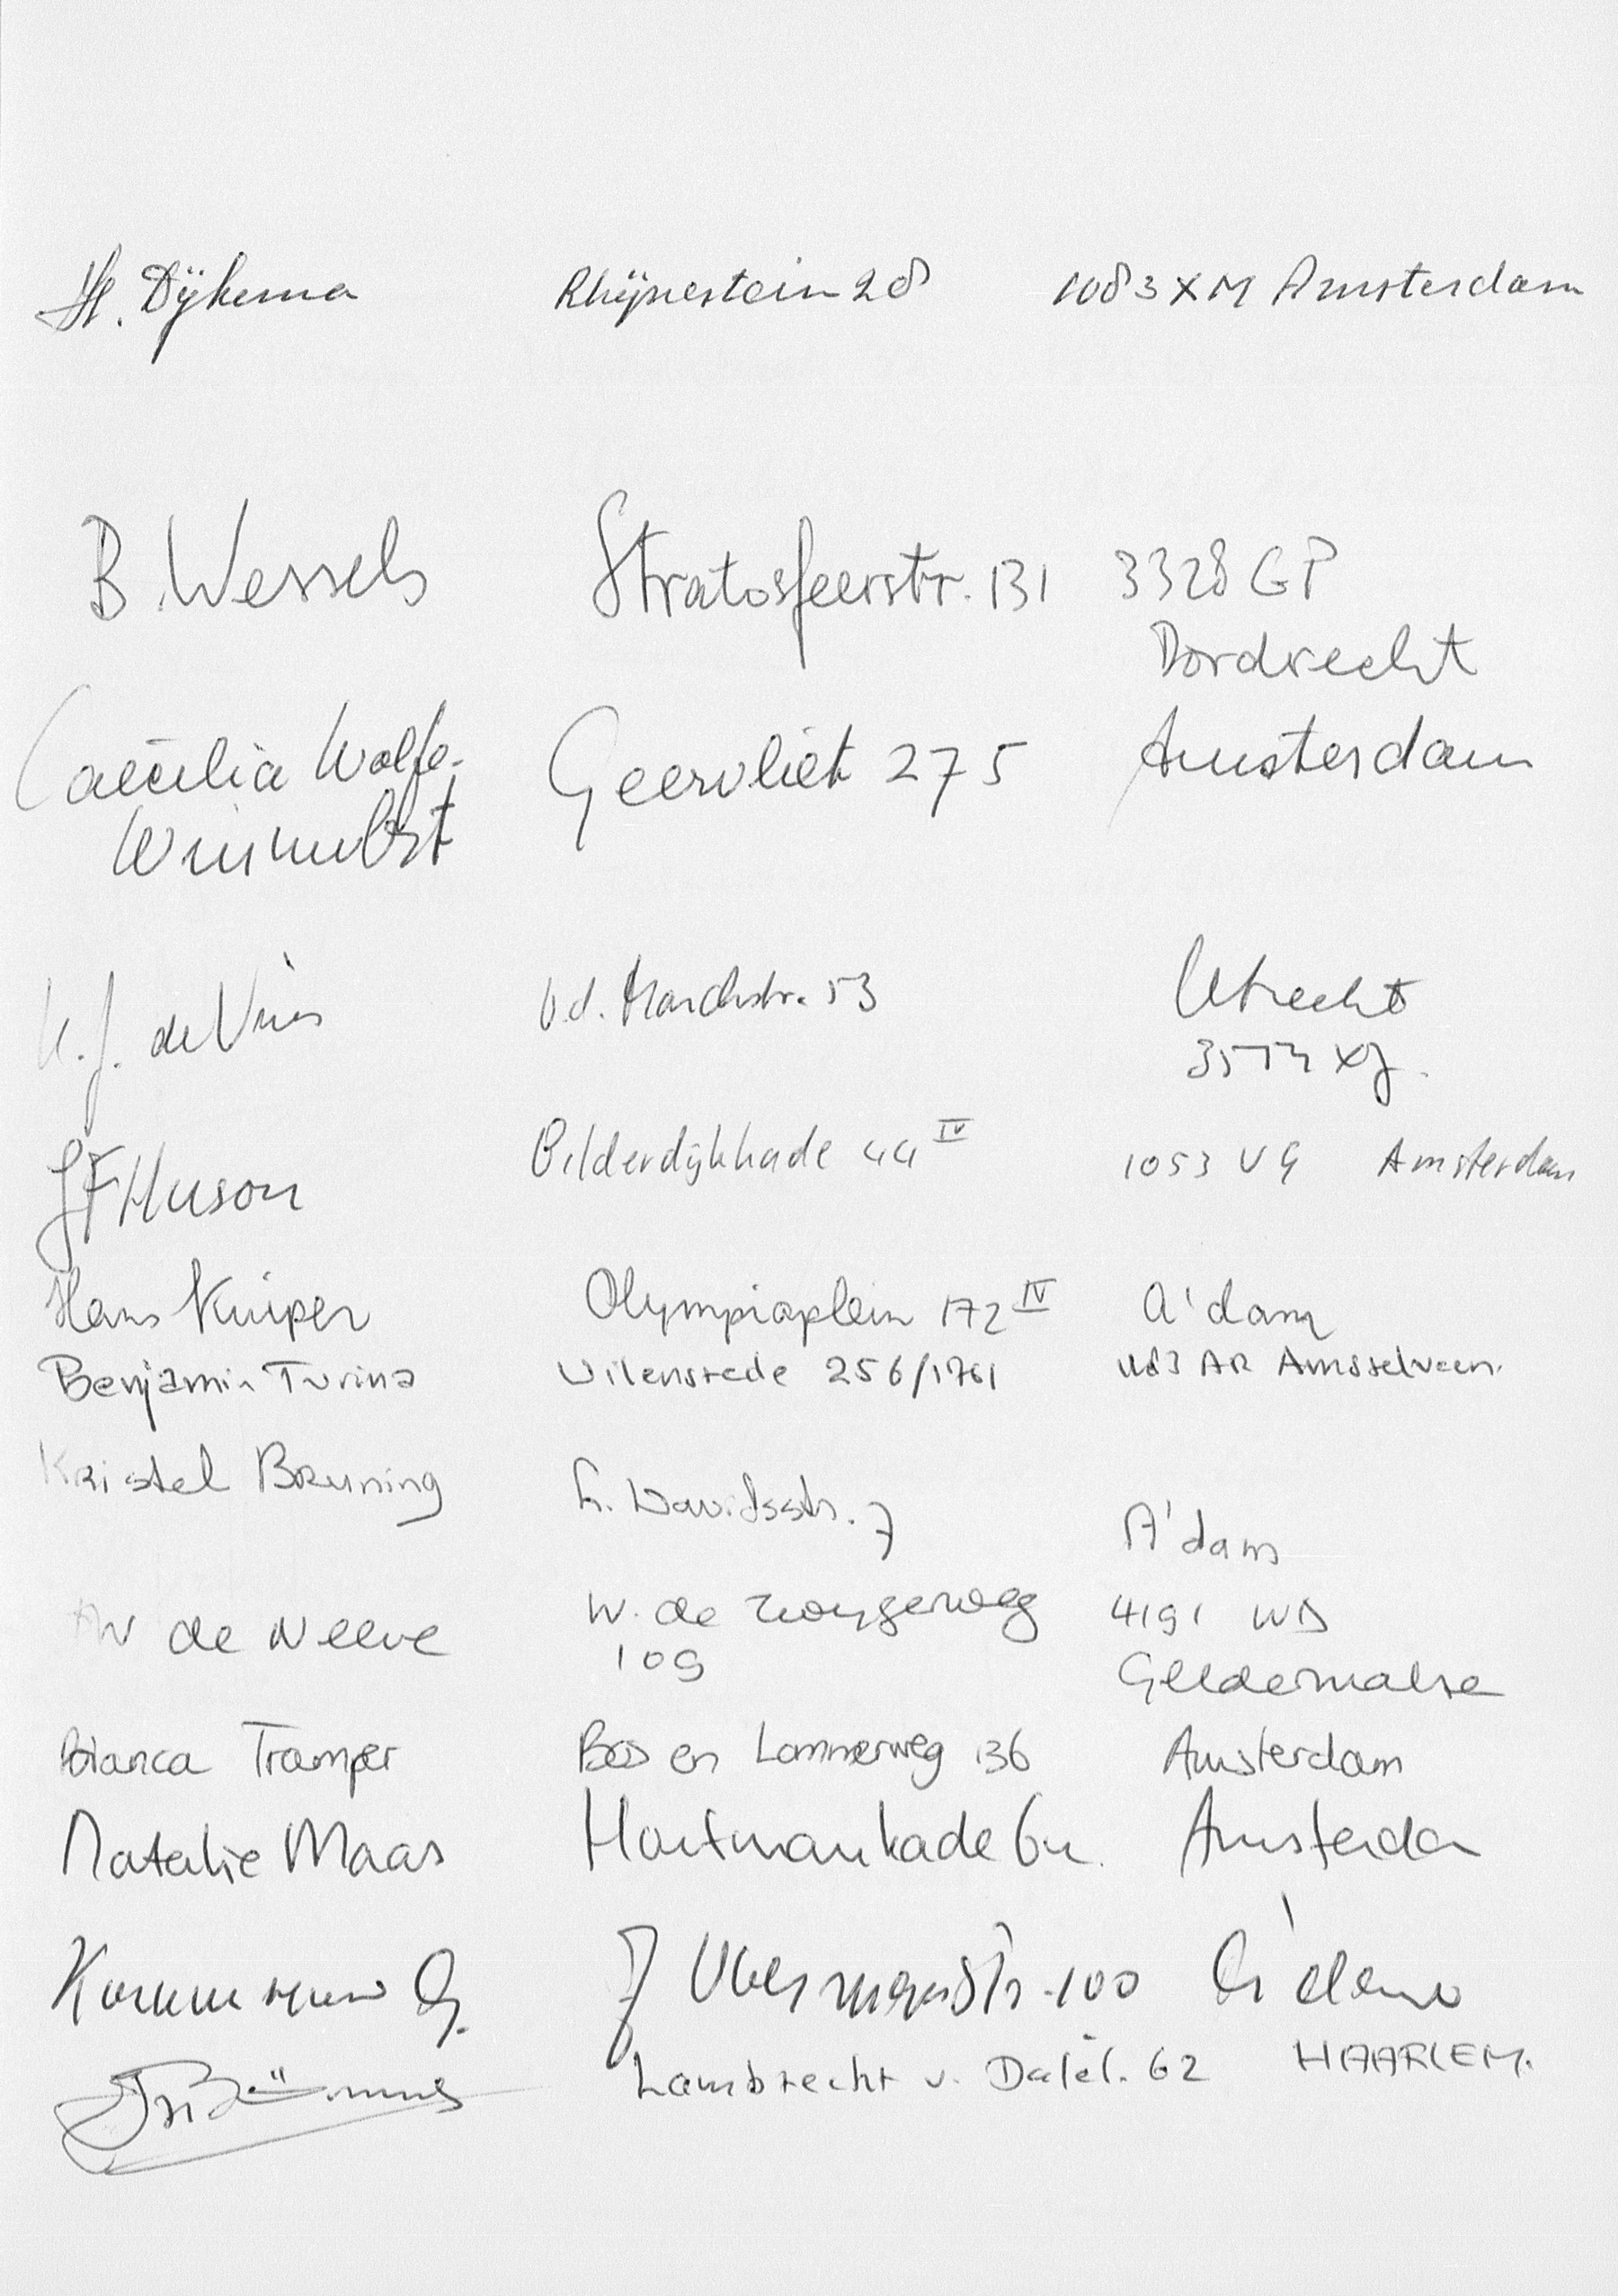 H. Dijkema Rhijnestein 28 1083 XM Amsterdam
B. Wessels Stratosfeerstr. 131 3328 GP
Dordrecht
Caecilia Wolfe- Geervliet 275 Amsterdam
J. de Vries v.d. Marckstr. 53 Utrecht
XJ.
JF Huson Bilderdijkkade 44 IV 1053 VG Amsterdam
Hans Kuiper Olympiaplein 172 IV A'dam
Benjamin Turina Uilenstede 256/1761 1183 AR Amsselveen.
Kristel Bruning h. Davidsstr. 7
A'dam
de Neeve W. de 4191 WD
109 Geldermalse
Bianca Tramper Bos en Lommerweg 136 Amsterdam
Natalie Maas Hortmankade Amsterda
100 A'dam
Lambrecht v. Dalel. 62 HAARLEM.